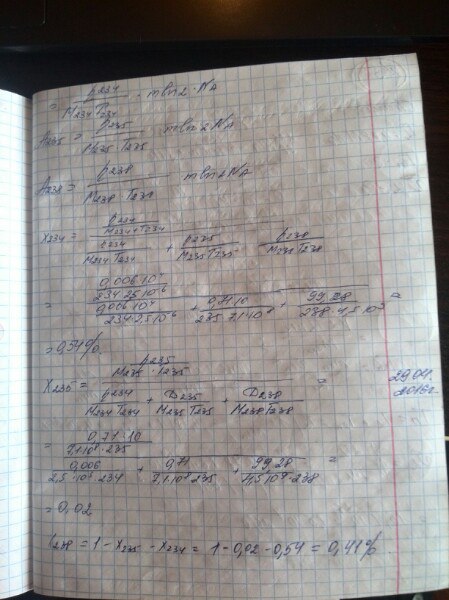 = p234 / M234T234 · mln2·NA
A235 = p235 / M235·T235 mln2NA
A238 = p238 / M238·T238 mln2NA
X234 = p234 / M234T234 / p234 / M234T234 + p235 / M235T235 p238 / M238T238
= 0,006·10 / 234·2,5·10 / 0,006·10 / 234·2,5·10 + 0,71·10 / 235·7,1·10⁸ + 99,28 / 238·4,5·10⁹ =
= 0,54%.
X235 = p235 / M235·T235 / p234 / M234T234 + p235 / M235T235 + p238 / M238T238 =
29.04.
2016г.
= 0,71·10 / 7,1·10⁸·235 / 0,006 / 2,5·10⁵·234 + 0,71 / 7,1·10⁸·235 + 99,28 / 4,5·10⁹·238 =
= 0,02
X238 = 1 - X235 - X234 = 1 - 0,02 - 0,54 = 0,41%.